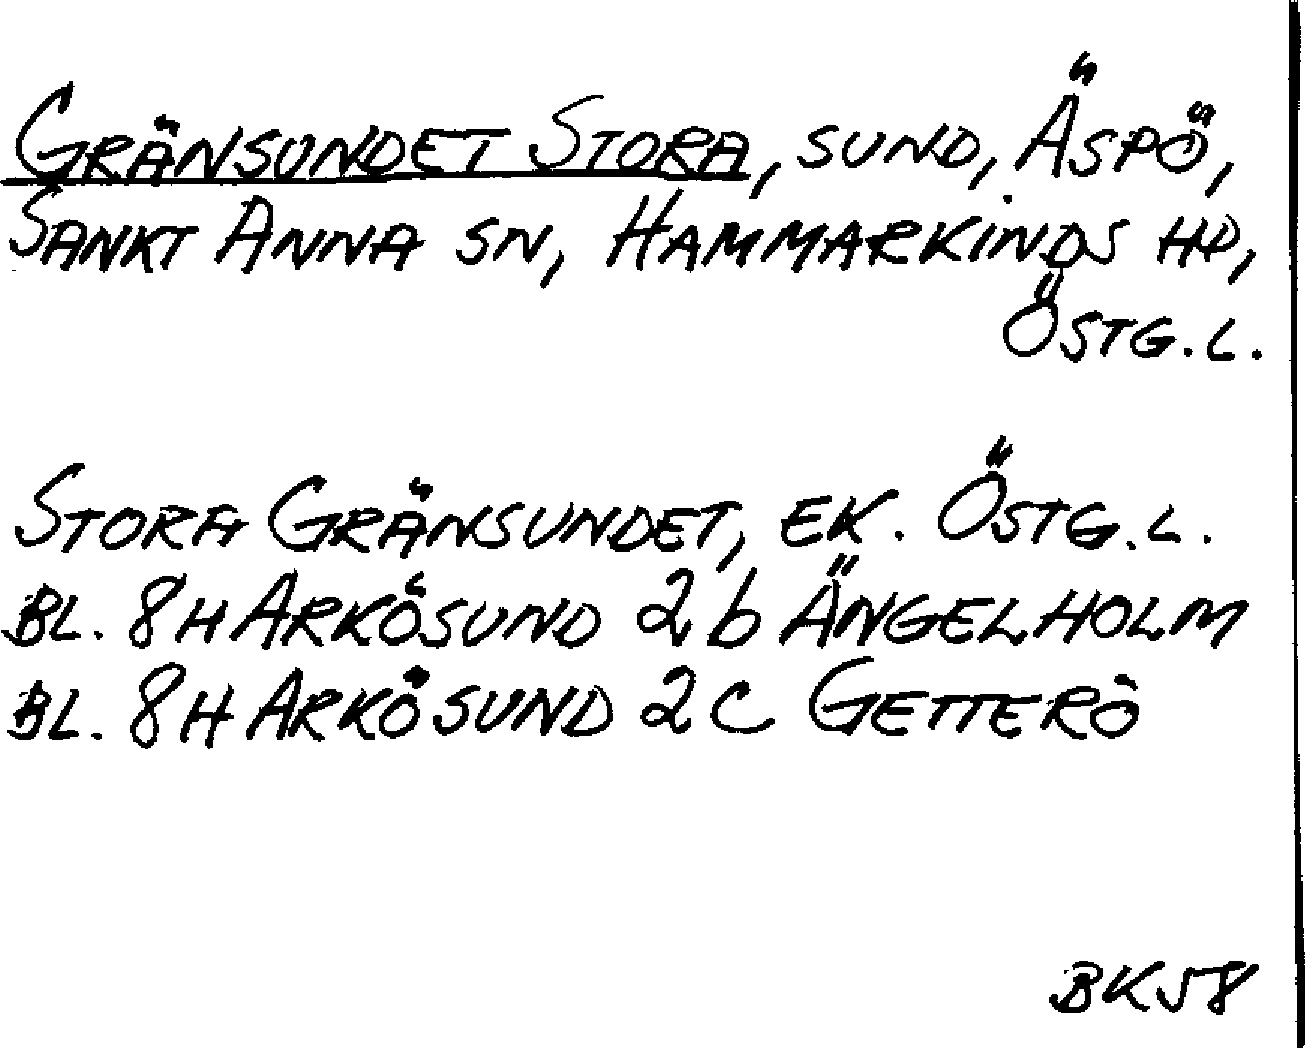 GRÄNSUNDET STORA, SUND, ÄSPÖ,
SANKT ANNA SN, HAMMARKINDS HD,
ÖSTG. L.
STORA GRÄNSUNDET, EK. ÖSTG. L.
BL. 8H ARKÖSUND 2b ÄNGELHOLM
BL. 8H ARKÖSUND 2C GETTERÖ
BK58